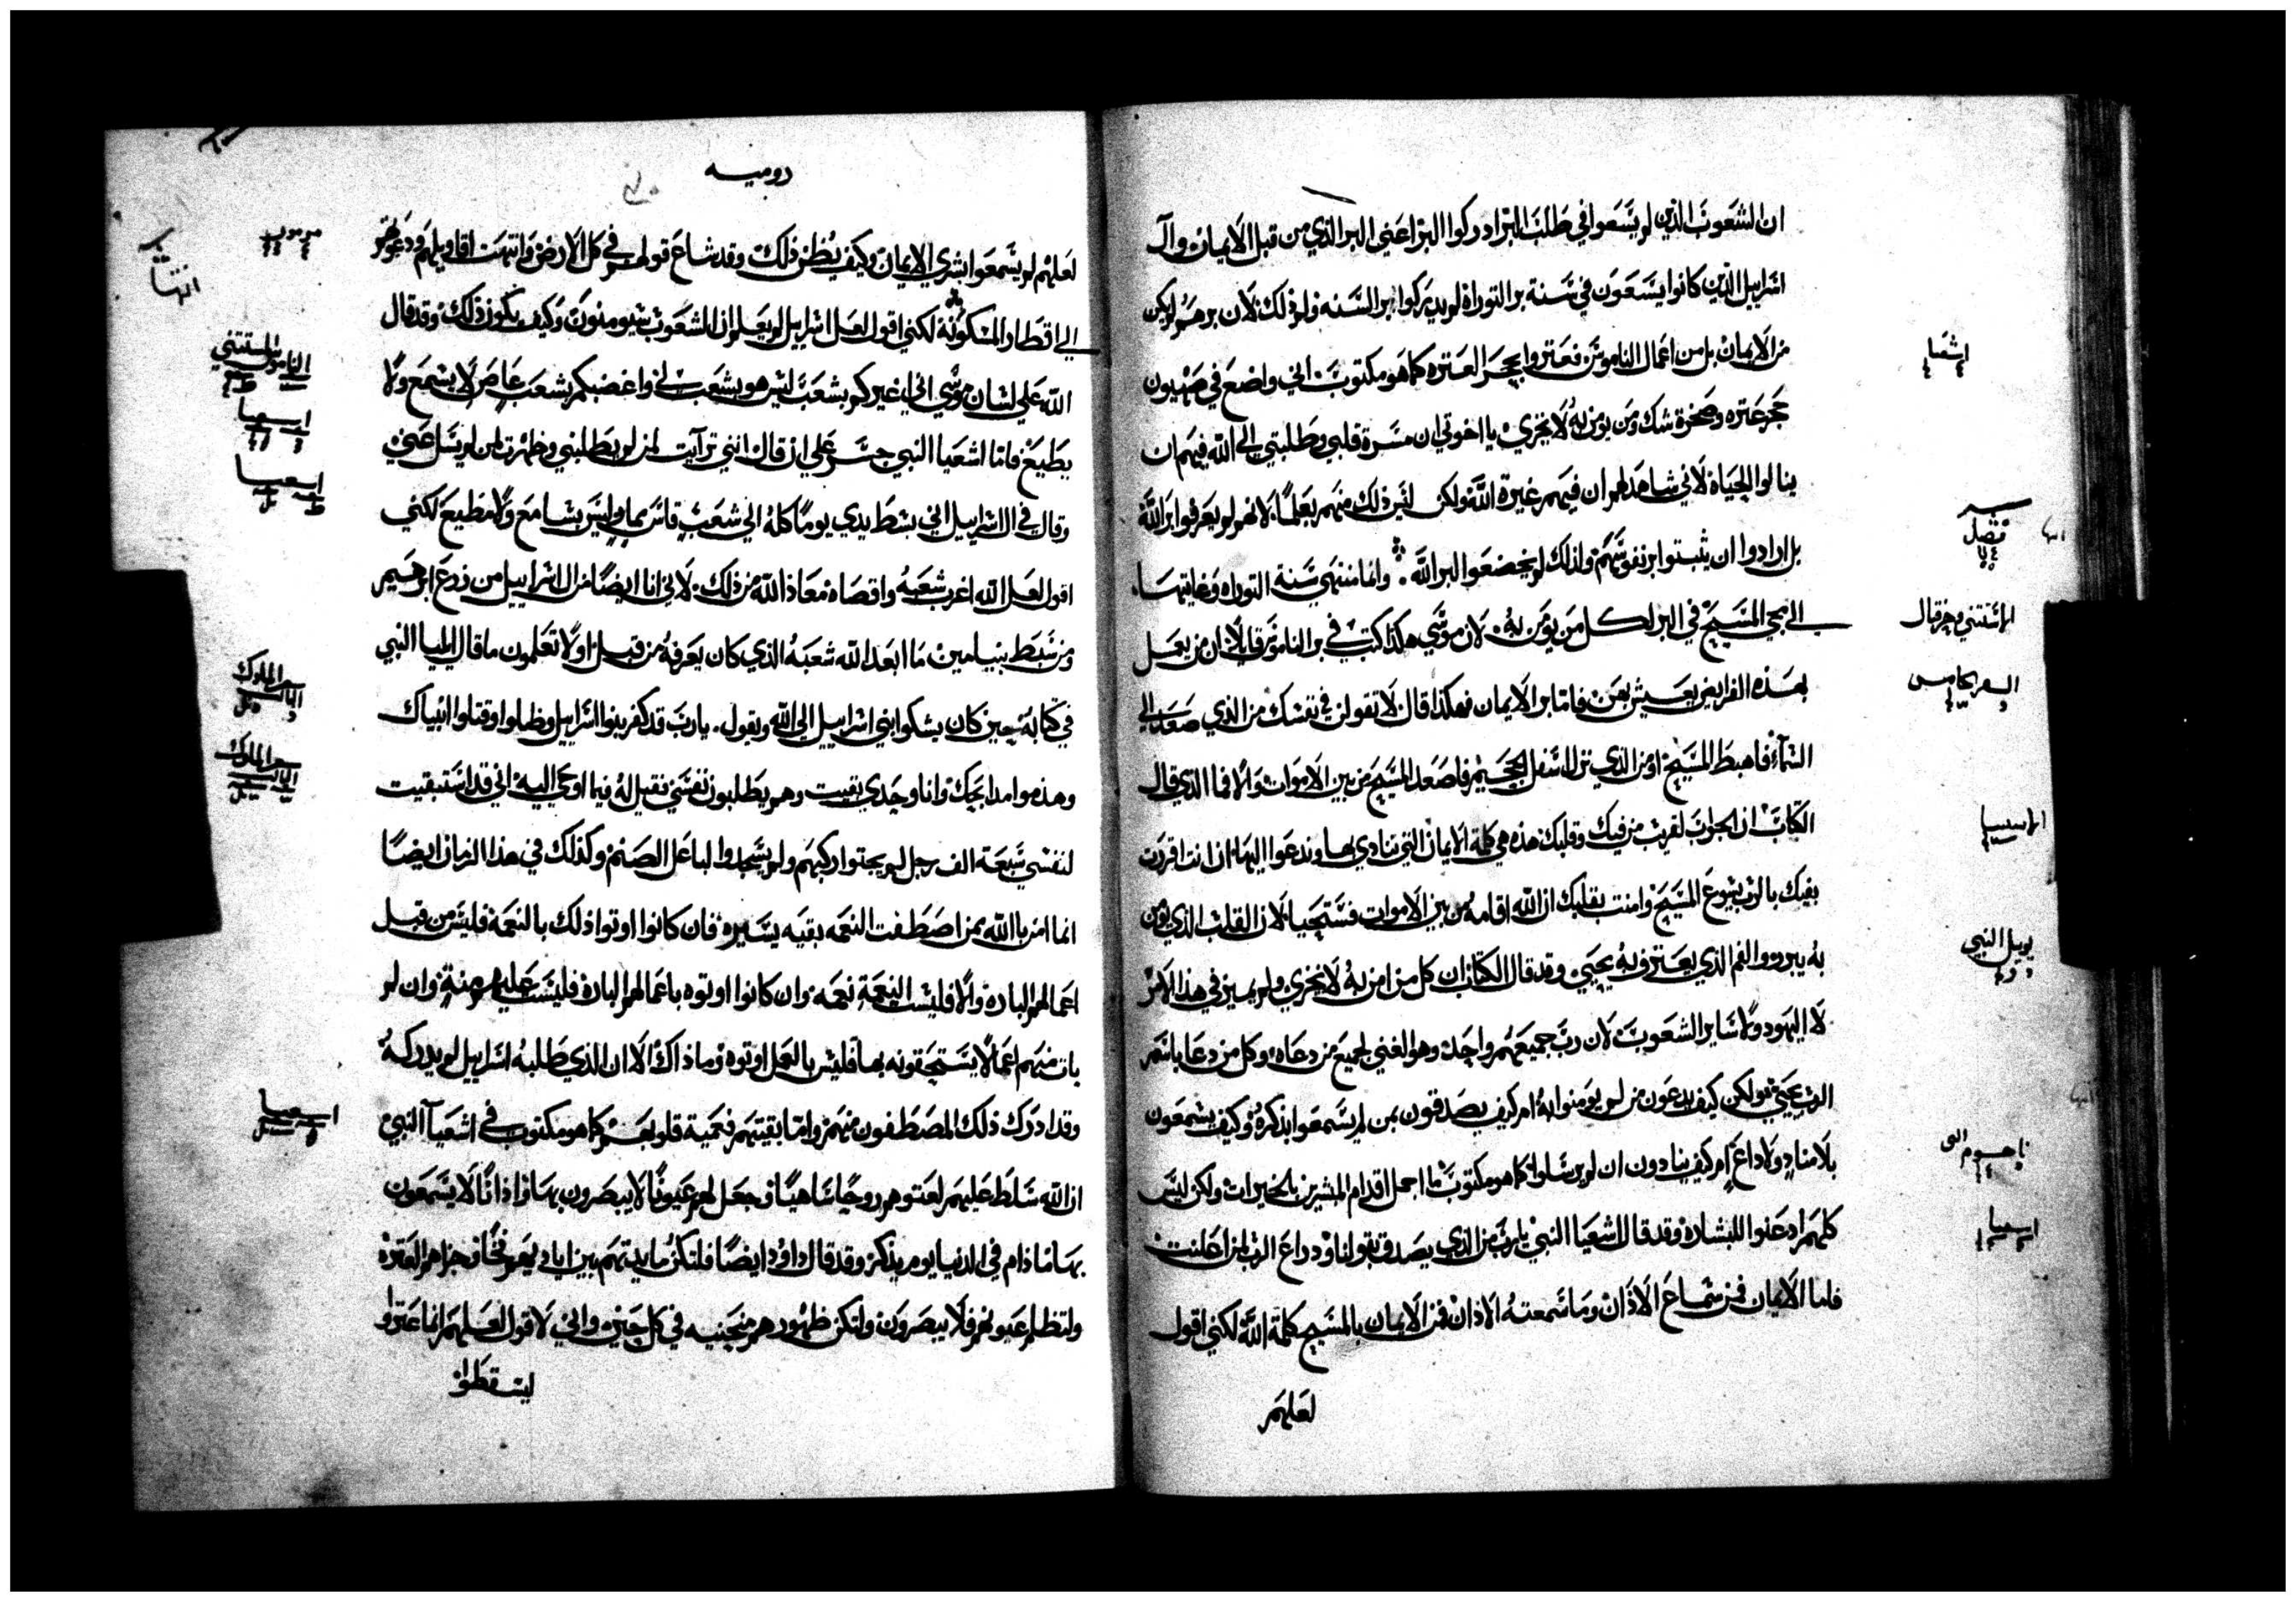 ان الشعوب الذين لم يسعوا في طلب البر ادركوا البر اعني البر الذي من قبل الايمان وآل
اسراييل الذين كانوا يسعون في سنة بر التوراة لم يدركوا بر السنه ولم ذلك لان برهم لم يكن
من الايمان بل من اعمال الناموس فعتروا بحجر العتره كما هو مكتوب اني واضع في صهيون
حجر عتره وصخرة شك ومن يومن به لا يخزي يا اخوتي ان مسرة قلبي وطلبتي الى الله فيهم ان
ينالوا الحياة لاني شاهد لهم ان فيهم غيرة الله ولكن ليس ذلك منهم بعلم لانهم لم يعرفوا بر الله
بل ارادوا ان يثبتوا بر نفوسهم ولذلك لم يخضعوا البر الله وانما منتهى سنة التوراه وغايتها
الى مجي المسيح في البر لكل من يؤمن به لان موسي هكذا كتب في بر الناموس قايلا ان من يعمل
بهذه الفرايض يعيش بهن فاما بر الايمان فهكذا قال لا تقولن في نفسك من الذي صعد الى
السماء فاهبط المسيح او من الذي نزل اسفل الجحيم فاصعد المسيح من بين الاموات والا فما الذي قال
الكتاب ان الجواب لقريب من فيك وقلبك هذه هي كلمة الايمان التي ننادي بها وندعوا اليها ان انت اقررت
بفيك بالرب يشوع المسيح وامنت بقلبك ان الله اقامه من بين الاموات فستحيا لان القلب الذي يؤمن
به يبرر والفم الذي يعترف به يحيى وقد قال الكتاب ان كل من امن به لا يخزي ولم يميز في هذا الامر
لا اليهود ولا ساير الشعوب لان رب جميعهم واحد وهو الغني لجميع من دعاه وكل من دعا باسم
الرب يحيى ولكن كيف يدعون من لم يومنوا به ام كيف يصدقون بمن لم يسمعوا بذكره وكيف يسمعون
بلا مناد ولا داع ام كيف ينادون ان لم يرسلوا كما هو مكتوب ما اجمل اقدام المبشرين بالخيرات ولكن ليس
كلهم ادعنوا للبشارة وقد قال اشعيا النبي يا رب من الذي يصدق بقولنا وذراع الرب لمن اعلنت
فلما الايمان فمن سماع الاذان وما سمعته الاذان فمن الايمان بالمسيح كلمة الله لكني اقول
لعلهم
اشعيا
فصل
السفر الخامس
يويل النبي
ناحوم النبي
اشعيا
روميه
لعلهم لم يسمعوا بشري الايمان وكيف يظن ذلك وقد شاع قولهم في كل الارض وانتهت اقاويلهم ودعوتهم
الى اقطار المسكونة لكني اقول لعل اسراييل لم يعلم ان الشعوب سيومنون وكيف يكون ذلك وقد قال
الله على لسان موسي اني اغيركم بشعب ليس هو بشعب لي واغضبكم بشعب عاص لا يسمع ولا
يطيع فاما اشعيا النبي جسر علي ان قال انني ترآيت لمن لم يطلبني وظهرت لمن لم يسل عني
وقال في ال اسراييل اني بسط يدي يوما كله الي شعب قاس ليس بسامع ولا مطيع لكني
اقول لعل الله اغرب شعبه واقصاه معاذ الله من ذلك لاني انا ايضا من ال اسراييل من زرع ابرهيم
ومن سبط بنيامين ما ابعد الله شعبه الذي كان يعرفه من قبل اولا تعلمون ما قال ايليا النبي
في كتابه حين كان يشكوا بني اسراييل الى الله ويقول يا رب قد كفر بنوا اسراييل وظلموا وقتلوا انبياك
وهدموا مدابحك وانا وحدي بقيت وهم يطلبون نفسي فقيل له فيما اوحي اليه اني قد استبقيت
لنفسي سبعة الف رجل لم يجتوا ركبهم ولم يسجدوا لباعل الصنم وكذلك في هذا الزمان ايضا
انما امن بالله بمن اصطفت النعمه بقيه يسيره فان كانوا اوتوا ذلك بالنعمة فليس من قبل
اعمالهم الباره والا فليست النعمة نعمه وان كانوا اوتوه باعمالهم الباره فليست عليهم منة وان لم
يات منهم اعمالا يستحقونه بها فليس بالعمل اوتوه وما ذاك الا ان الذي طلبه اسراييل لم يدركه
وقد ادرك ذلك المصطفون منهم واما بقيتهم فعمية قلوبهم كما هو مكتوب في اشعيآ النبي
ان الله سلط عليهم لعتوهم روحا ساهيا وجعل لهم عيونا لا يبصرون بها واذانا لا يسمعون
بها ما دام في الدنيا يوم يذكر وقد قال داود ايضا فلتكن مايدتهم بين ايديهم فخا وجزاهم العتره
ولتظلم عيونهم فلا يبصرون ولتكن ظهورهم منحنيه في كل حين واني لاقول لعلهم انما عتروا
ليسقطوا
اشعيا
اشعيا
سفر الملوك
سفر الملوك
اشعيا